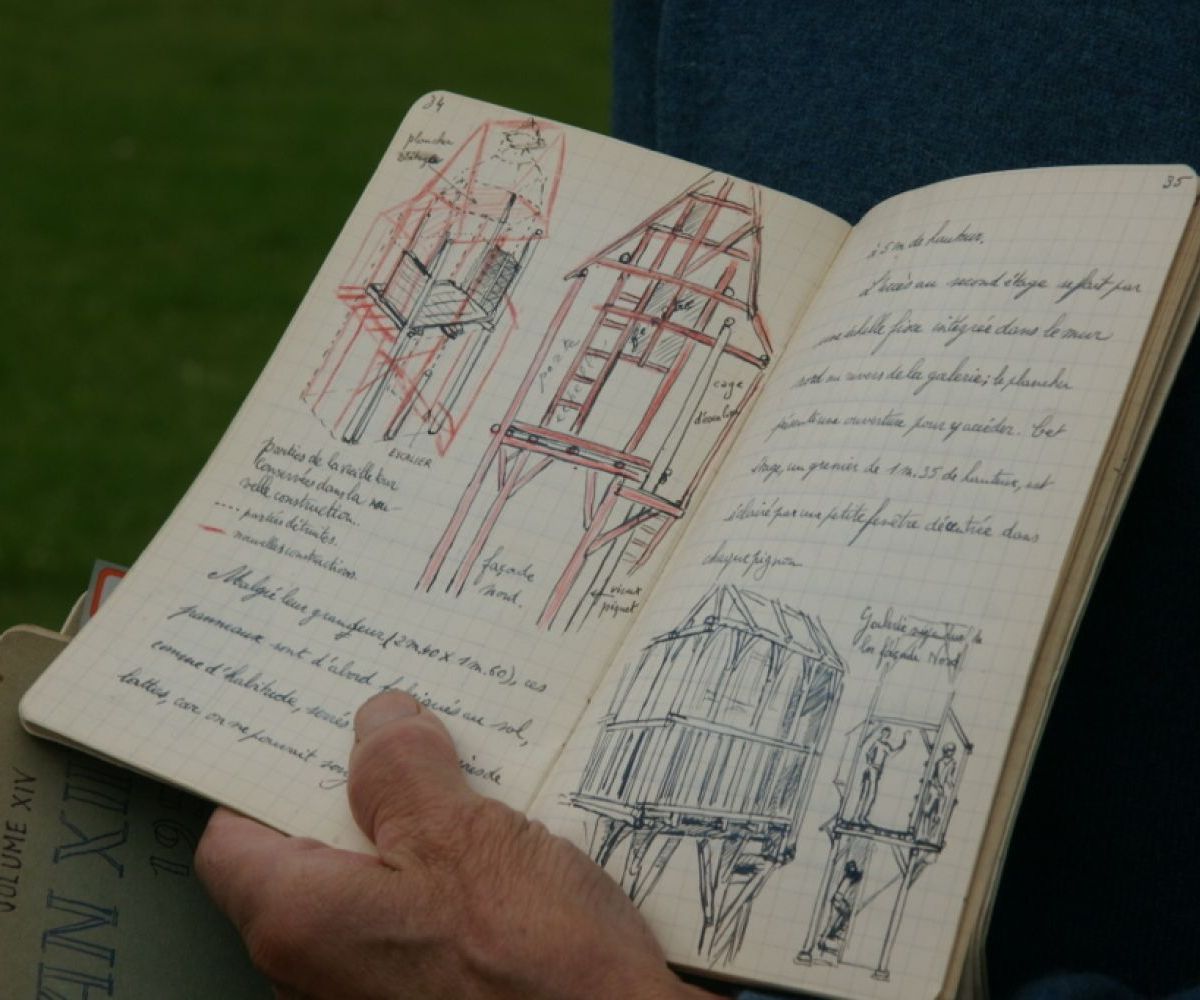 34
plancher
ESCALIER
parties de la vieille tour
conservées dans la nou-
velle construction.
parties détruites.
nouvelles constructions.
porte
cage
d'escalier
façade
Nord.
vieux
piquet
Malgré leur grandeur (2m.40 x 1m.60), ces
panneaux sont d'abord fabriqués au sol,
comme d'habitude, serrés
lattes, car on ne pourrait
35
à 5 m de hauteur.
L'accès au second étage se fait par
une échelle fixe intégrée dans le mur
nord au travers de la galerie; le plancher
présente une ouverture pour y accéder. Cet
étage, un grenier de 1m.35 de hauteur, est
éclairé par une petite fenêtre décentrée dans
chaque pignon
Galerie
la façade Nord
VOLUME XIV